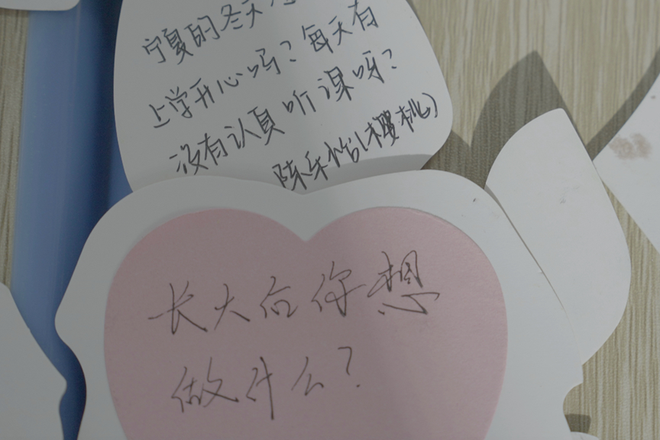 宁夏的冬天
上学开心吗？每天有
没有认真听课呀？
陈乐怡(樱桃)
长大后你想
做什么？